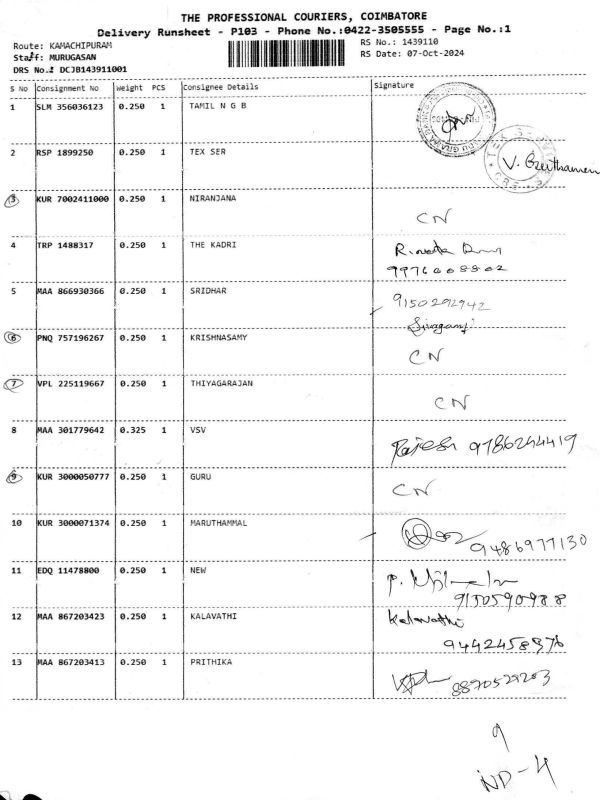 THE PROFESSIONAL COURIERS, COIMBATORE
Delivery Runsheet - P103 - Phone No.:0422-3505555 - Page No.:1
Route: KAMACHIPURAM
RS No.: 1439110
Staff: MURUGASAN
RS Date: 07-Oct-2024
DRS No.: DCJB143911001
S No Consignment No Weight PCS Consignee Details Signature
1 SLM 356036123 0.250 1 TAMIL N G B
2 RSP 1899250 0.250 1 TEX SER
3 KUR 7002411000 0.250 1 NIRANJANA
CN
4 TRP 1488317 0.250 1 THE KADRI
5 MAA 866930366 0.250 1 SRIDHAR
9150292942
6 PNQ 757196267 0.250 1 KRISHNASAMY
CN
7 VPL 225119667 0.250 1 THIYAGARAJAN
CN
8 MAA 301779642 0.325 1 VSV
9786244419
9 KUR 3000050777 0.250 1 GURU
CN
10 KUR 3000071374 0.250 1 MARUTHAMMAL
9486977130
11 EDQ 11478800 0.250 1 NEW
9150590988
12 MAA 867203423 0.250 1 KALAVATHI
Kalavathi
9442458376
13 MAA 867203413 0.250 1 PRITHIKA
8870529203
9
ND-4